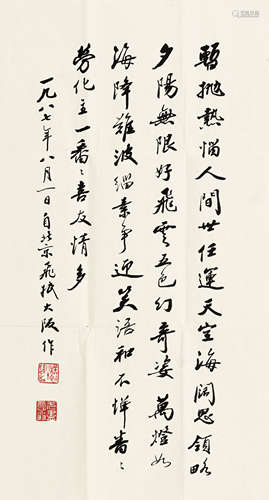 暫抛熱惱人間世任運天空海闊思領略
夕陽無限好飛雲五色幻奇姿萬燈如
海降難波緇素爭迎笑語和不憚番々
勞化主一番々喜友情多
一九八七年八月一日自北京飛抵大阪作